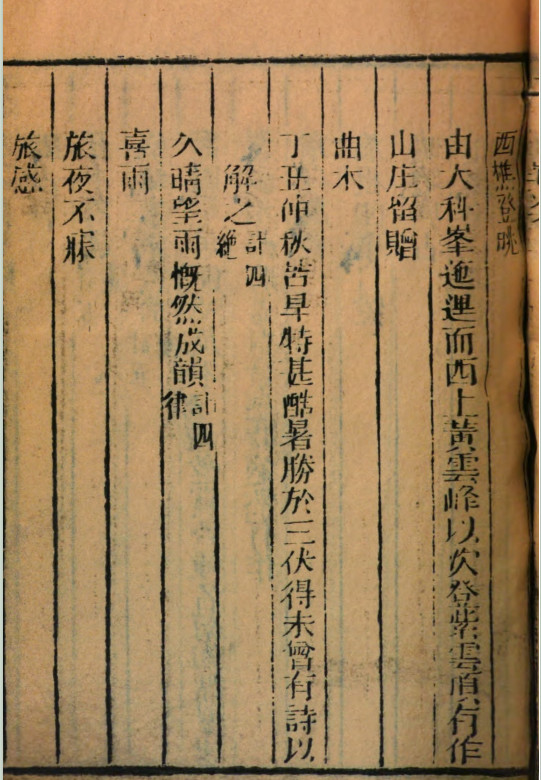 西樵登眺
由大科峯迤邐而西上黃雲峰以次登紫雲頂有作
山庄留贈
曲木
丁丑仲秋苦旱特甚酷暑勝於三伏得未曾有詩以
解之計四絕
久晴望雨慨然成韻計四律
喜雨
旅夜不寐
旅感